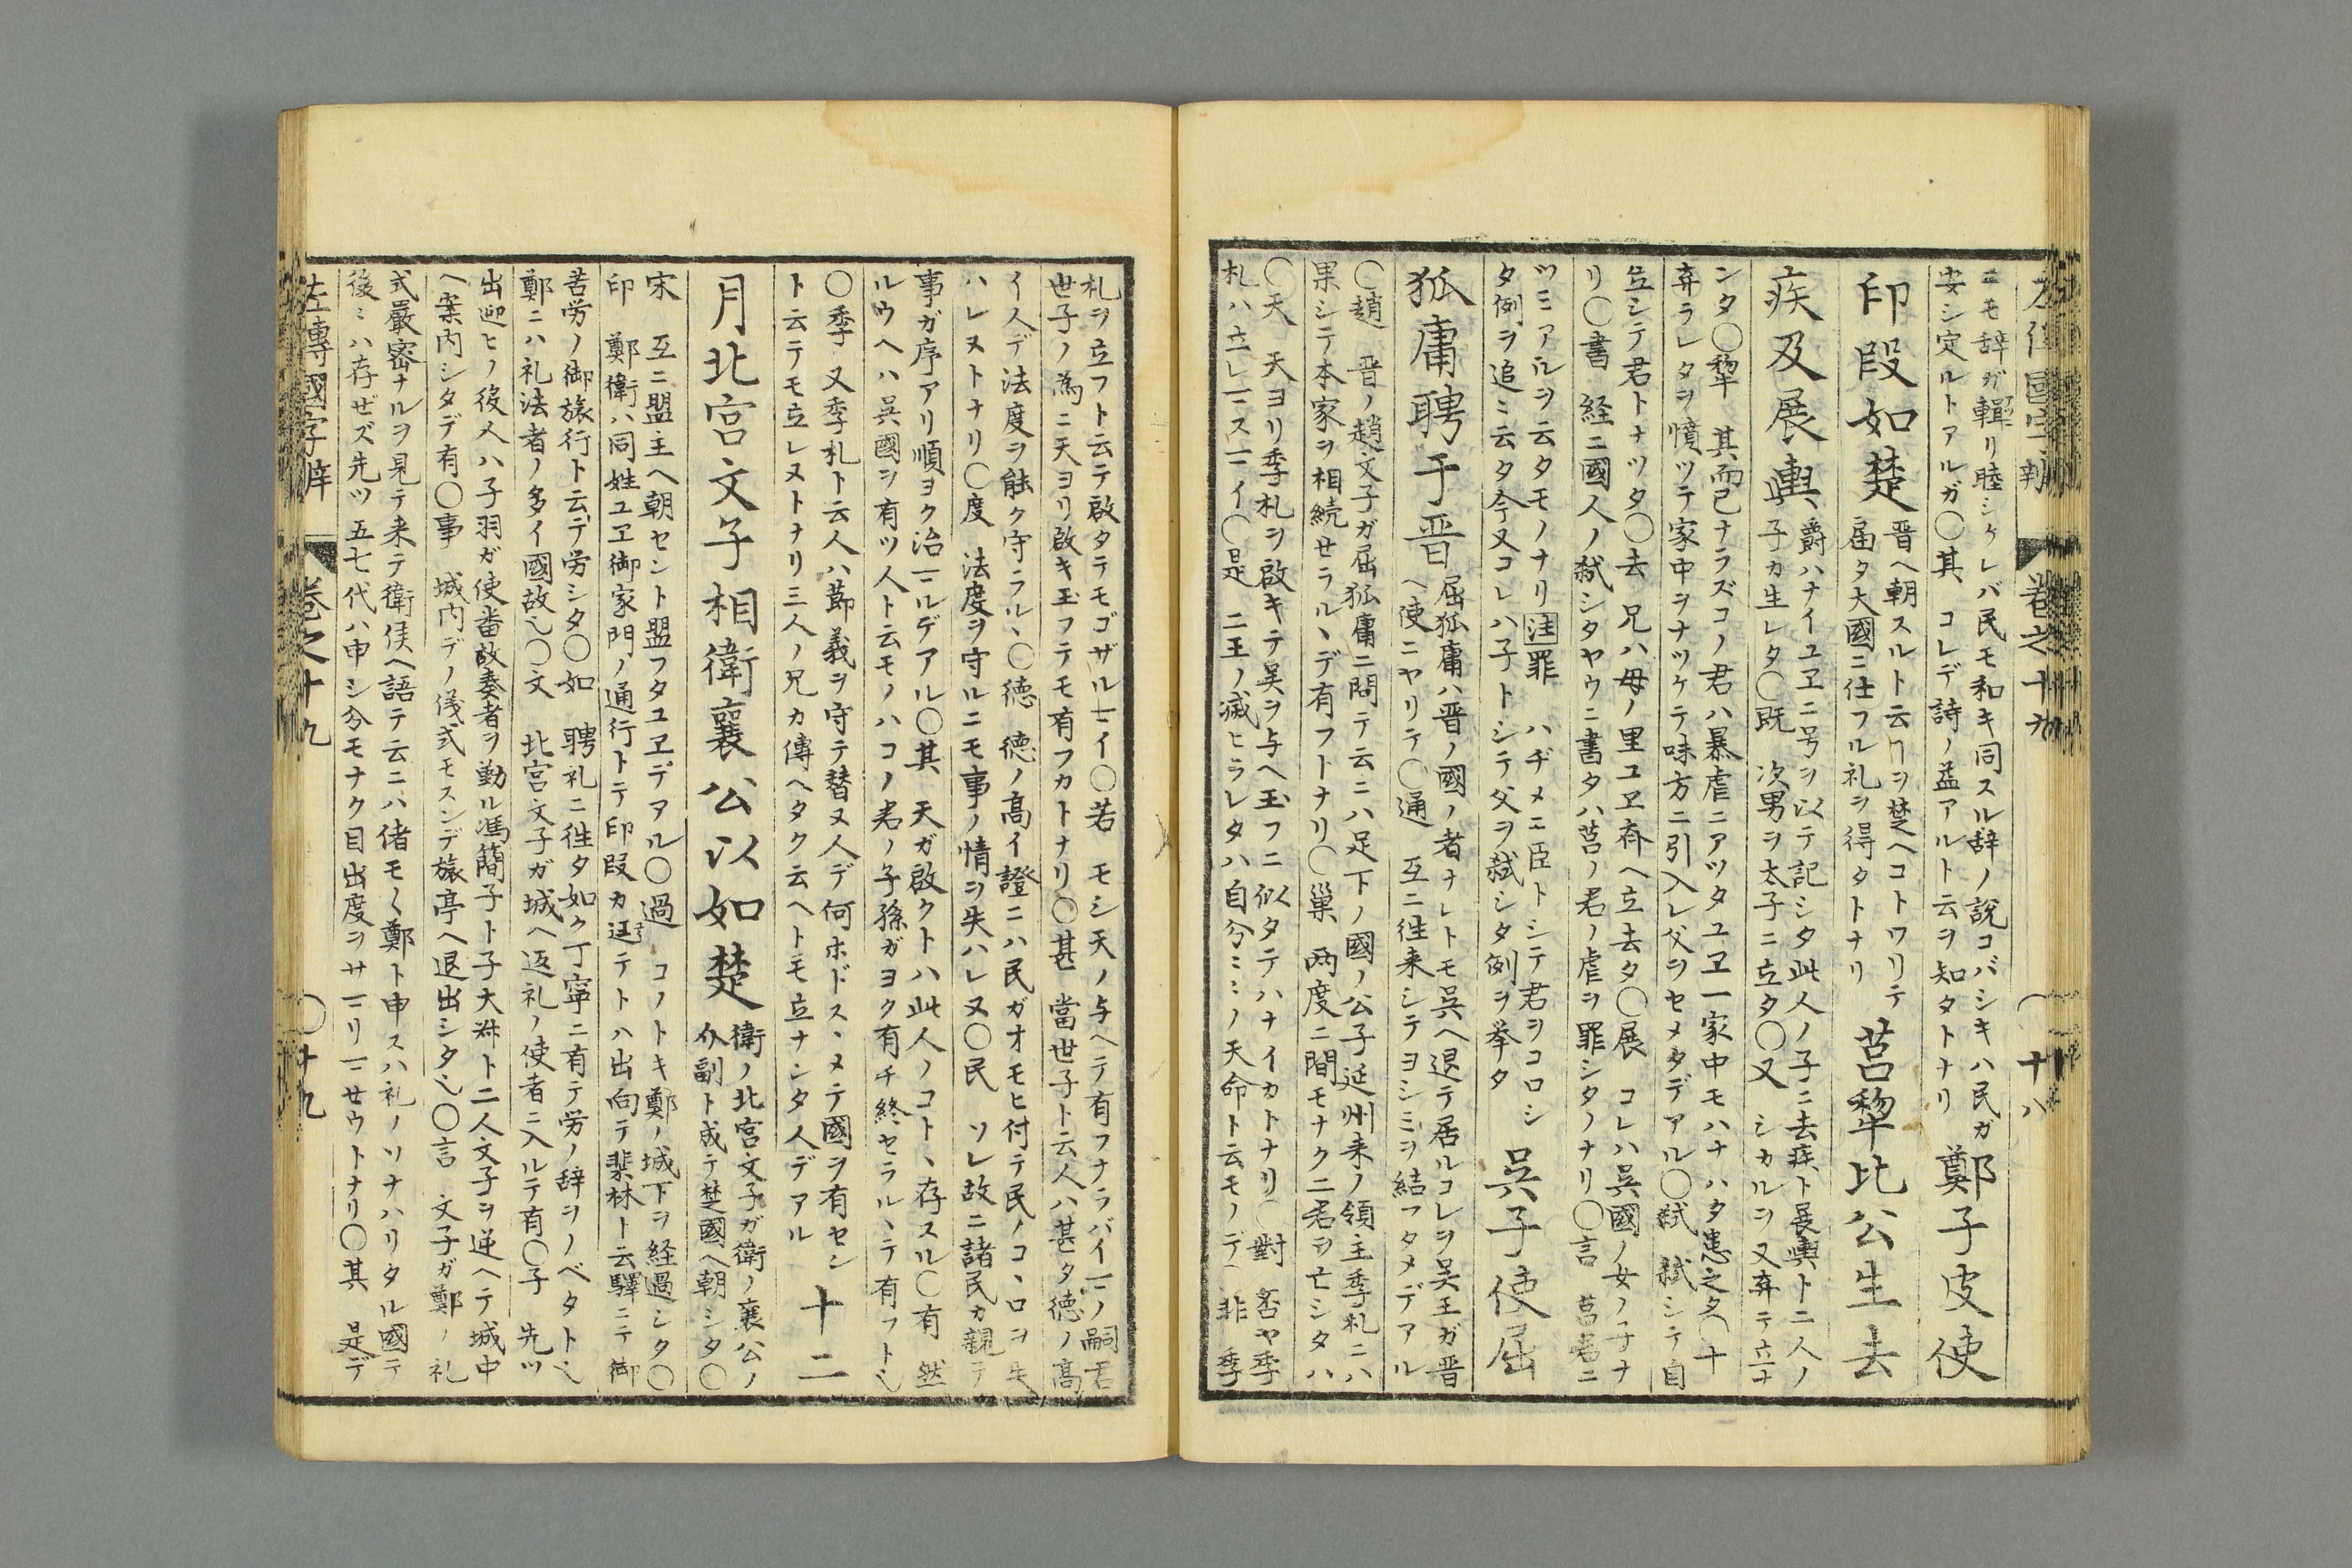 ニモ辞ガ輯リ睦シケレバ民モ和キ同スル辞ノ説コバシキハ民ガ
安シ定ルトアルガ〇其 コレデ詩ノ益アルト云ヲ知タトナリ
鄭子皮使
印段如楚
晋ヘ朝スルト云ヿヲ楚ヘコトワリテ
届タ大國ニ仕フル礼ヲ得タトナリ
莒犂比公生去
疾及展輿
爵ハナイユヱニ号ヲ以テ記シタ此人ノ子ニ去疾ト展輿ト二人ノ
子カ生レタ〇既 次男ヲ太子ニ立タ〇又 シカルヲ又弃テ立ナ
ンタ〇犂 其而已ナラズコノ君ハ暴虐ニアツタユヱ一家中モハナハタ患之タ〇十
弃ラレタヲ憤ツテ家中ヲナツケテ味方ニ引入レ父ヲセメタデアル〇弑 弑シテ自
立シテ君トナツタ〇去 兄ハ母ノ里ユヱ斉ヘ立去タ〇展 コレハ呉國ノ女ノ子ナ
リ〇書 経ニ國人ノ弑シタヤウニ書タハ莒ノ君ノ虐ヲ罪シタノナリ〇言 莒君ニ
ツミアルヲ云タモノナリ注罪 ハヂメニ臣トシテ君ヲコロシ
タ例ヲ追ミ云タ今又コレハ子トシテ父ヲ弑シタ例ヲ挙タ
呉子使屈
狐庸聘于晋
屈狐庸ハ晋ノ國ノ者ナレトモ呉ヘ退テ居ルコレヲ呉王ガ晋
ヘ使ニヤリテ〇通 互ニ往来シテヨシミヲ結フタメデアル
〇趙 晋ノ趙文子ガ屈狐庸ニ問テ云ニハ足下ノ國ノ公子延州来ノ領主季札ニハ
果シテ本家ヲ相続セラルヽデ有フトナリ〇巣 両度ニ間モナク二君ヲ亡シタハ
〇天 天ヨリ季札ヲ啟キテ呉ヲ与ヘ玉フニ似タテハナイカトナリ〇對 否ヤ季
札ハ立レヿスヿイ〇是 二王ノ滅ヒラレタハ自分ミミノ天命ト云モノデ〇非 季
札ヲ立フト云テ啟タテモゴザルヿイ〇若 モシ天ノ与ヘテ有フナラバイヿノ嗣君
世子ノ為ニ天ヨリ啟キ玉フテモ有フカトナリ〇甚 當世子ト云人ハ甚タ徳ノ高
イ人デ法度ヲ能ク守ラルヽ〇徳 徳ノ高イ證ニハ民ガオモヒ付テ民ノコヽロヲ失
ハレヌトナリ〇度 法度ヲ守ルニモ事ノ情ヲ失ハレヌ〇民 ソレ故ニ諸民カ親テ
事ガ序アリ順ヨク治ヿルデアル〇其 天ガ啟クトハ此人ノコトヽ存スル〇有 然
ルウヘハ呉國ヲ有ツ人ト云モノハコノ君ノ子孫ガヨク有チ終セラルヽテ有フト也
〇季 又季札ト云人ハ節義ヲ守テ替ヌ人デ何ホドスヽメテ國ヲ有セン
ト云テモ立レヌトナリ三人ノ兄カ傳ヘタク云ヘトモ立ナンタ人デアル
十二
月北宮文子相衛襄公以如楚
衛ノ北宮文子ガ衛ノ襄公ノ
介副ト成テ楚國ヘ朝シタ〇
宋 互ニ盟主ヘ朝セント盟フタユヱデアル〇過 コノトキ鄭ノ城下ヲ経過シタ〇
印 鄭衛ハ同姓ユヱ御家門ノ通行トテ印段カ迋テトハ出向テ棐林ト云驛ニテ御
苦労ノ御旅行ト云デ労シタ〇如 聘礼ニ往タ如ク丁寧ニ有テ労ノ辞ヲノベタト也
鄭ニハ礼法者ノ多イ國故也〇文 北宮文子ガ城ヘ返礼ノ使者ニ入ルテ有〇子 先ツ
出迎ヒノ役人ハ子羽ガ使番故奏者ヲ勤ル馮簡子ト子大叔ト二人文子ヲ逆ヘテ城中
ヘ案内シタデ有〇事 城内デノ儀式モスンデ旅亭ヘ退出シタ也〇言 文子ガ鄭ノ礼
式嚴密ナルヲ見テ来テ衛侯ヘ語テ云ニハ偖モ〱鄭ト申スハ礼ノソナハリタル國テ
後ミハ存ゼズ先ツ五七代ハ申シ分モナク目出度ヲサヿリヿセウトナリ〇其 是デ
左傳國字辨 巻之十九 〇十九